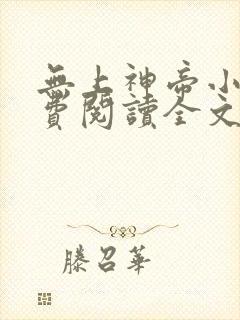 無上神帝小
費閱讀全文
滕召華